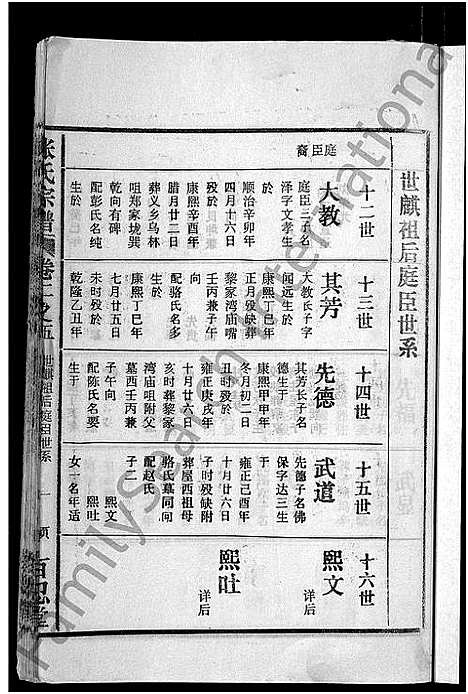 世麒祖后庭臣世系
十二世
十三世
十四世
十五世
十六世
庭臣裔
大教
庭臣三子名
泽字文孝生
于
顺治辛卯年
四月十六日
殁於
康熙辛酉年
腊月廿二日
葬义乡乌林
咀郑家垅巽
乾向有碑
配彭氏名纯
生於
其芳
大教长子字
闻远生於
康熙丁巳年
正月殁缺葬
黎家湾庙嘴
壬丙兼子午
向
配骆氏名多
生於
康熙丁巳年
七月廿五日
未时殁於
乾隆乙丑年
先德
其芳长子名
德生于
康熙甲申年
冬月初二日
丑时殁於
雍正庚戌年
十月廿六日
亥时葬黎家
湾庙咀附父
墓酉壬丙兼
子午向
配陈氏名要
生于
武道
先德子名佛
保字达三生
于
雍正己酉年
十月廿六日
子时殁缺附
葬屋西祖母
骆氏墓同向
配赵氏
子二 熙文
熙吐
女一名年适
熙文
详后
熙吐
详后
张氏宗谱 卷二之五 世麒祖后庭臣世系 一 百忍堂
FamilySearch International